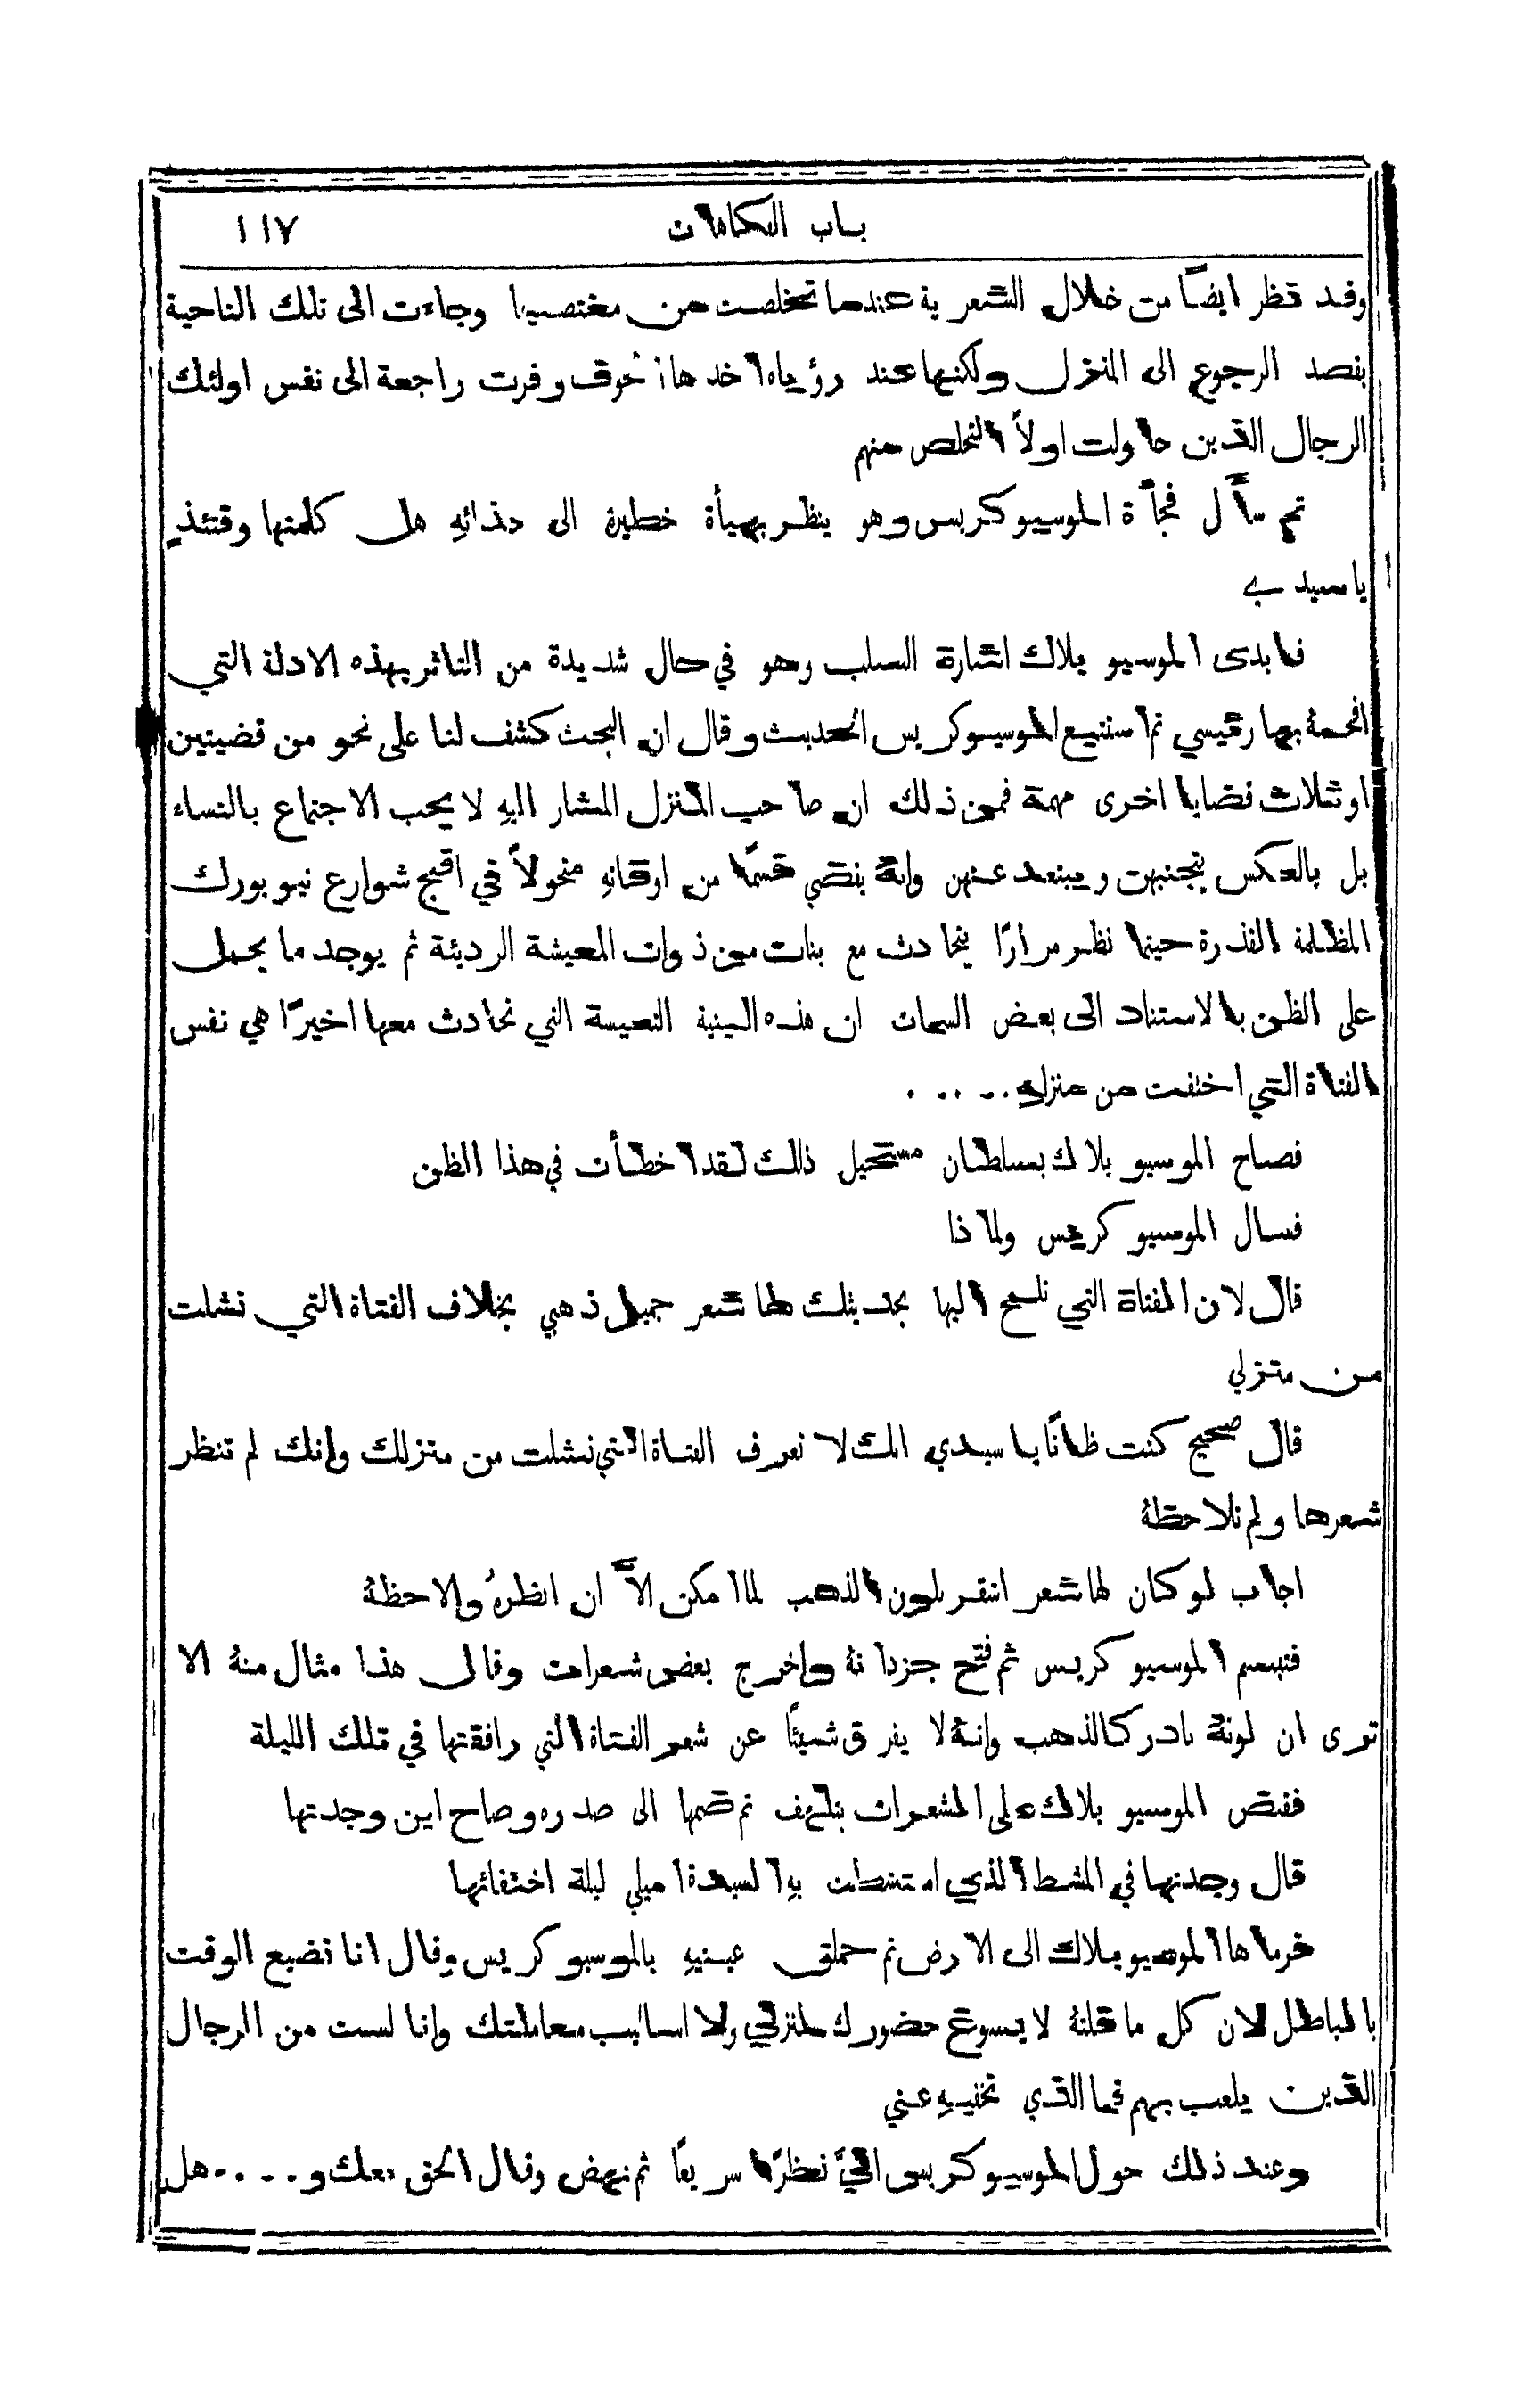 باب الفكاهات ١١٧
وقد نظر ايضًا من خلال الشعرية عندما تخلصت من مغتصبيها وجاءت الى تلك الناحية
بقصد الرجوع الى المنزل ولكنها عند رؤياه اخذها الخوف وفرت راجعة الى نفس اولئك
الرجال الذين حاولت اولاً التخلص منهم
ثم سأل فجأة الموسيو كريس وهو ينظر بهيأة خطيرة الى حذائهِ هل كلمتها وقتئذٍ
ياسيدي
فابدى الموسيو بلاك اشارة السلب وهو في حال شديدة من التاثر بهذه الادلة التي
افحمهُ بها رئيسي ثم استتبع الموسيو كريس الحديث وقال ان البحث كشف لنا على نحو من قضيتين
او ثلاث قضايا اخرى مهمة فمن ذلك ان صاحب المنزل المشار اليهِ لا يحب الاجتماع بالنساء
بل بالعكس يتجنبهن ويبتعد عنهن وانهُ يقضي قسمًا من اوقاتهِ متجولاً في اقبح شوارع نيويورك
المظلمة القذرة حيثما نظر مرارًا يتحادث مع بنات من ذوات المعيشة الرديئة ثم يوجد ما يحمل
على الظن بالاستناد الى بعض السمات ان هذه البنية التعيسة التي تحادث معها اخيرًا هي نفس
الفتاة التي اختفت من منزلهِ. . . . .
فصاح الموسيو بلاك بسلطان مستحيل ذلك لقد اخطأت في هذا الظن
فسال الموسيو كريس ولماذا
قال لان الفتاة التي تلمح اليها بحديثك لها شعر جميل ذهبي بخلاف الفتاة التي نشلت
من منزلي
قال صحيح كنت ظانًا يا سيدي انك لا تعرف الفتاة التي نشلت من منزلك وانك لم تنظر
شعرها ولم تلاحظهُ
اجاب لو كان لها شعر اشقر بلون الذهب لما امكن الاَّ ان انظرهُ والاحظهُ
فتبسم الموسيو كريس ثم فتح جزدانهُ واخرج بعض شعرات وقال هذا مثال منهُ الا
ترى ان لونهُ نادر كالذهب وانهُ لا يفرق شيئًا عن شعر الفتاة التي رافقتها في تلك الليلة
فقبض الموسيو بلاك على الشعرات بتلهف ثم ضمها الى صدره وصاح اين وجدتها
قال وجدتها في المشط الذي امتشطت بهِ السيدة اميلي ليلة اختفائها
فرماها الموسيو بلاك الى الارض ثم حملق عينيهِ بالموسيو كريس وقال انا نضيع الوقت
بالباطل لان كل ما قلتهُ لا يسوغ حضورك لمنزلي ولا اساليب معاملتك وانا لست من الرجال
الذين يلعب بهم فما الذي تخفيهِ عني
وعند ذلك حول الموسيو كريس اليَّ نظرًا سريعًا ثم نهض وقال الحق معك و. . . . هل